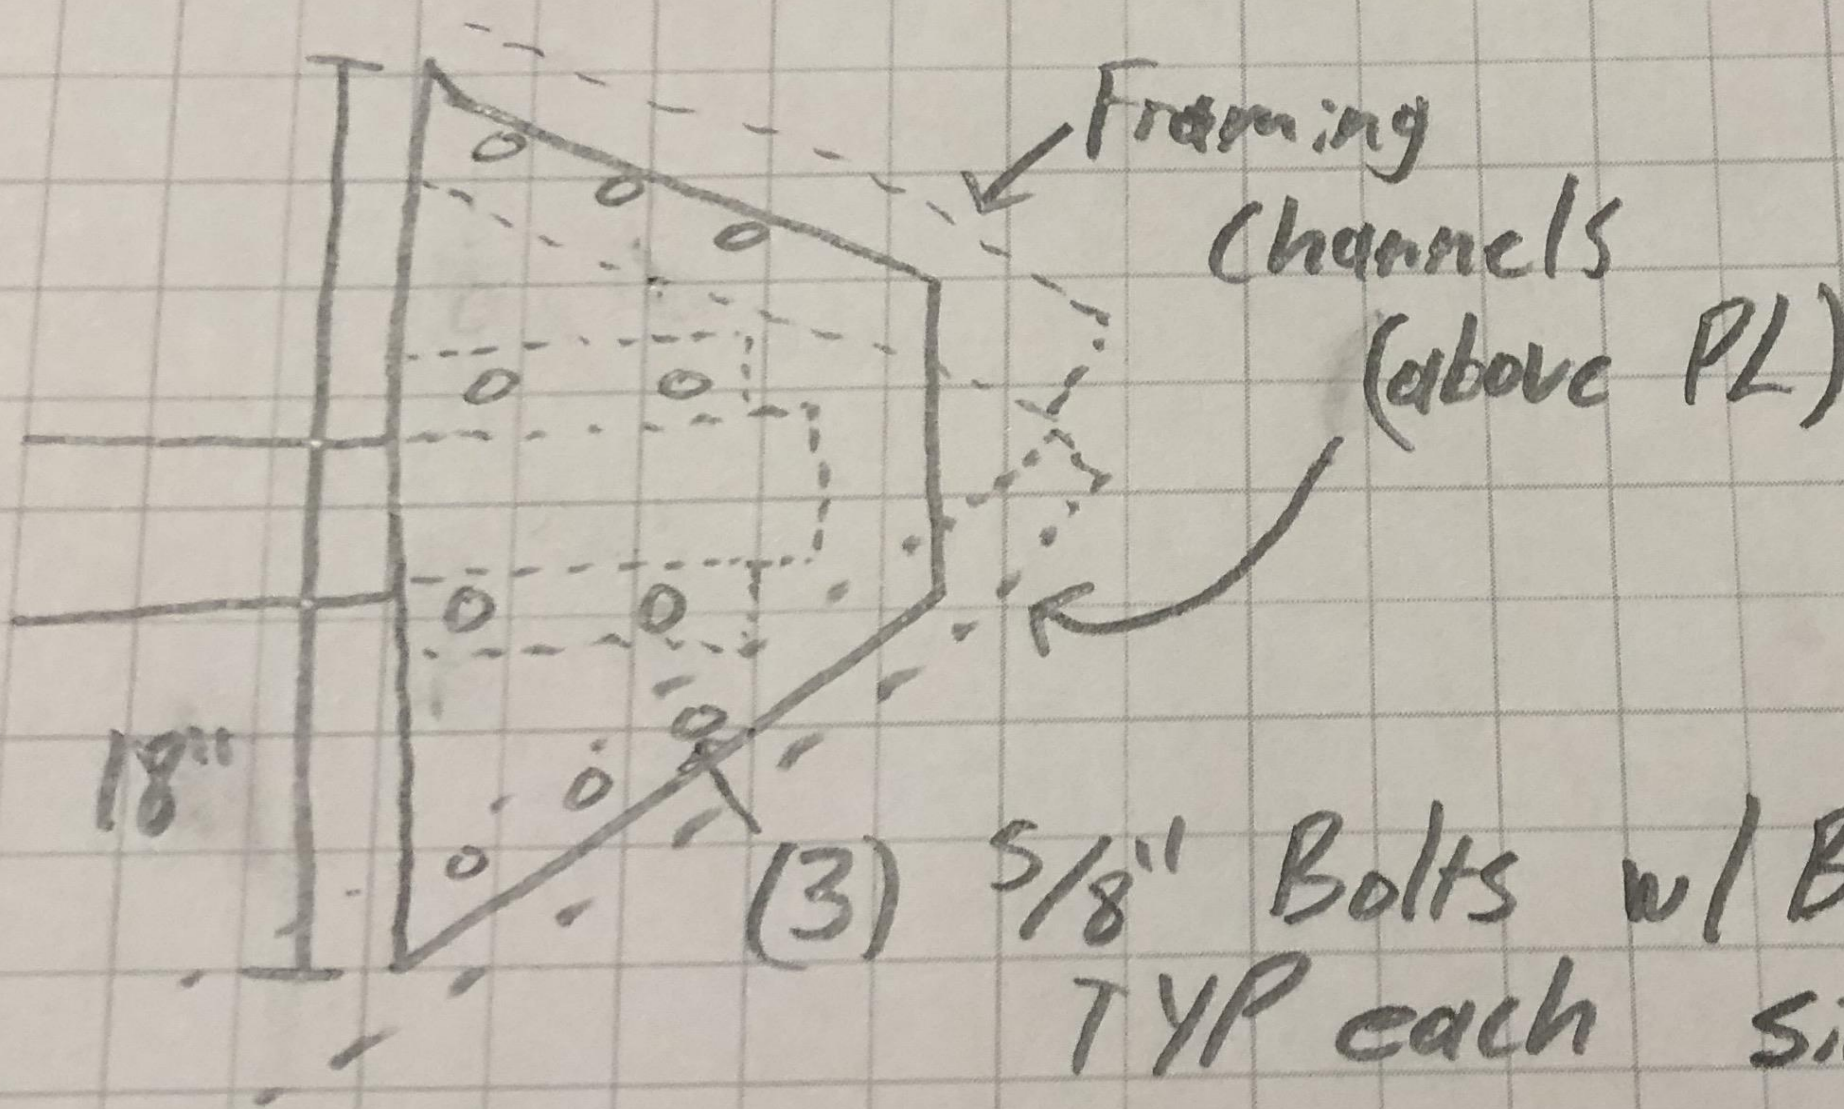 Framing
Channels
(above PL)
18"
(3) 5/8" Bolts w/
TYP each